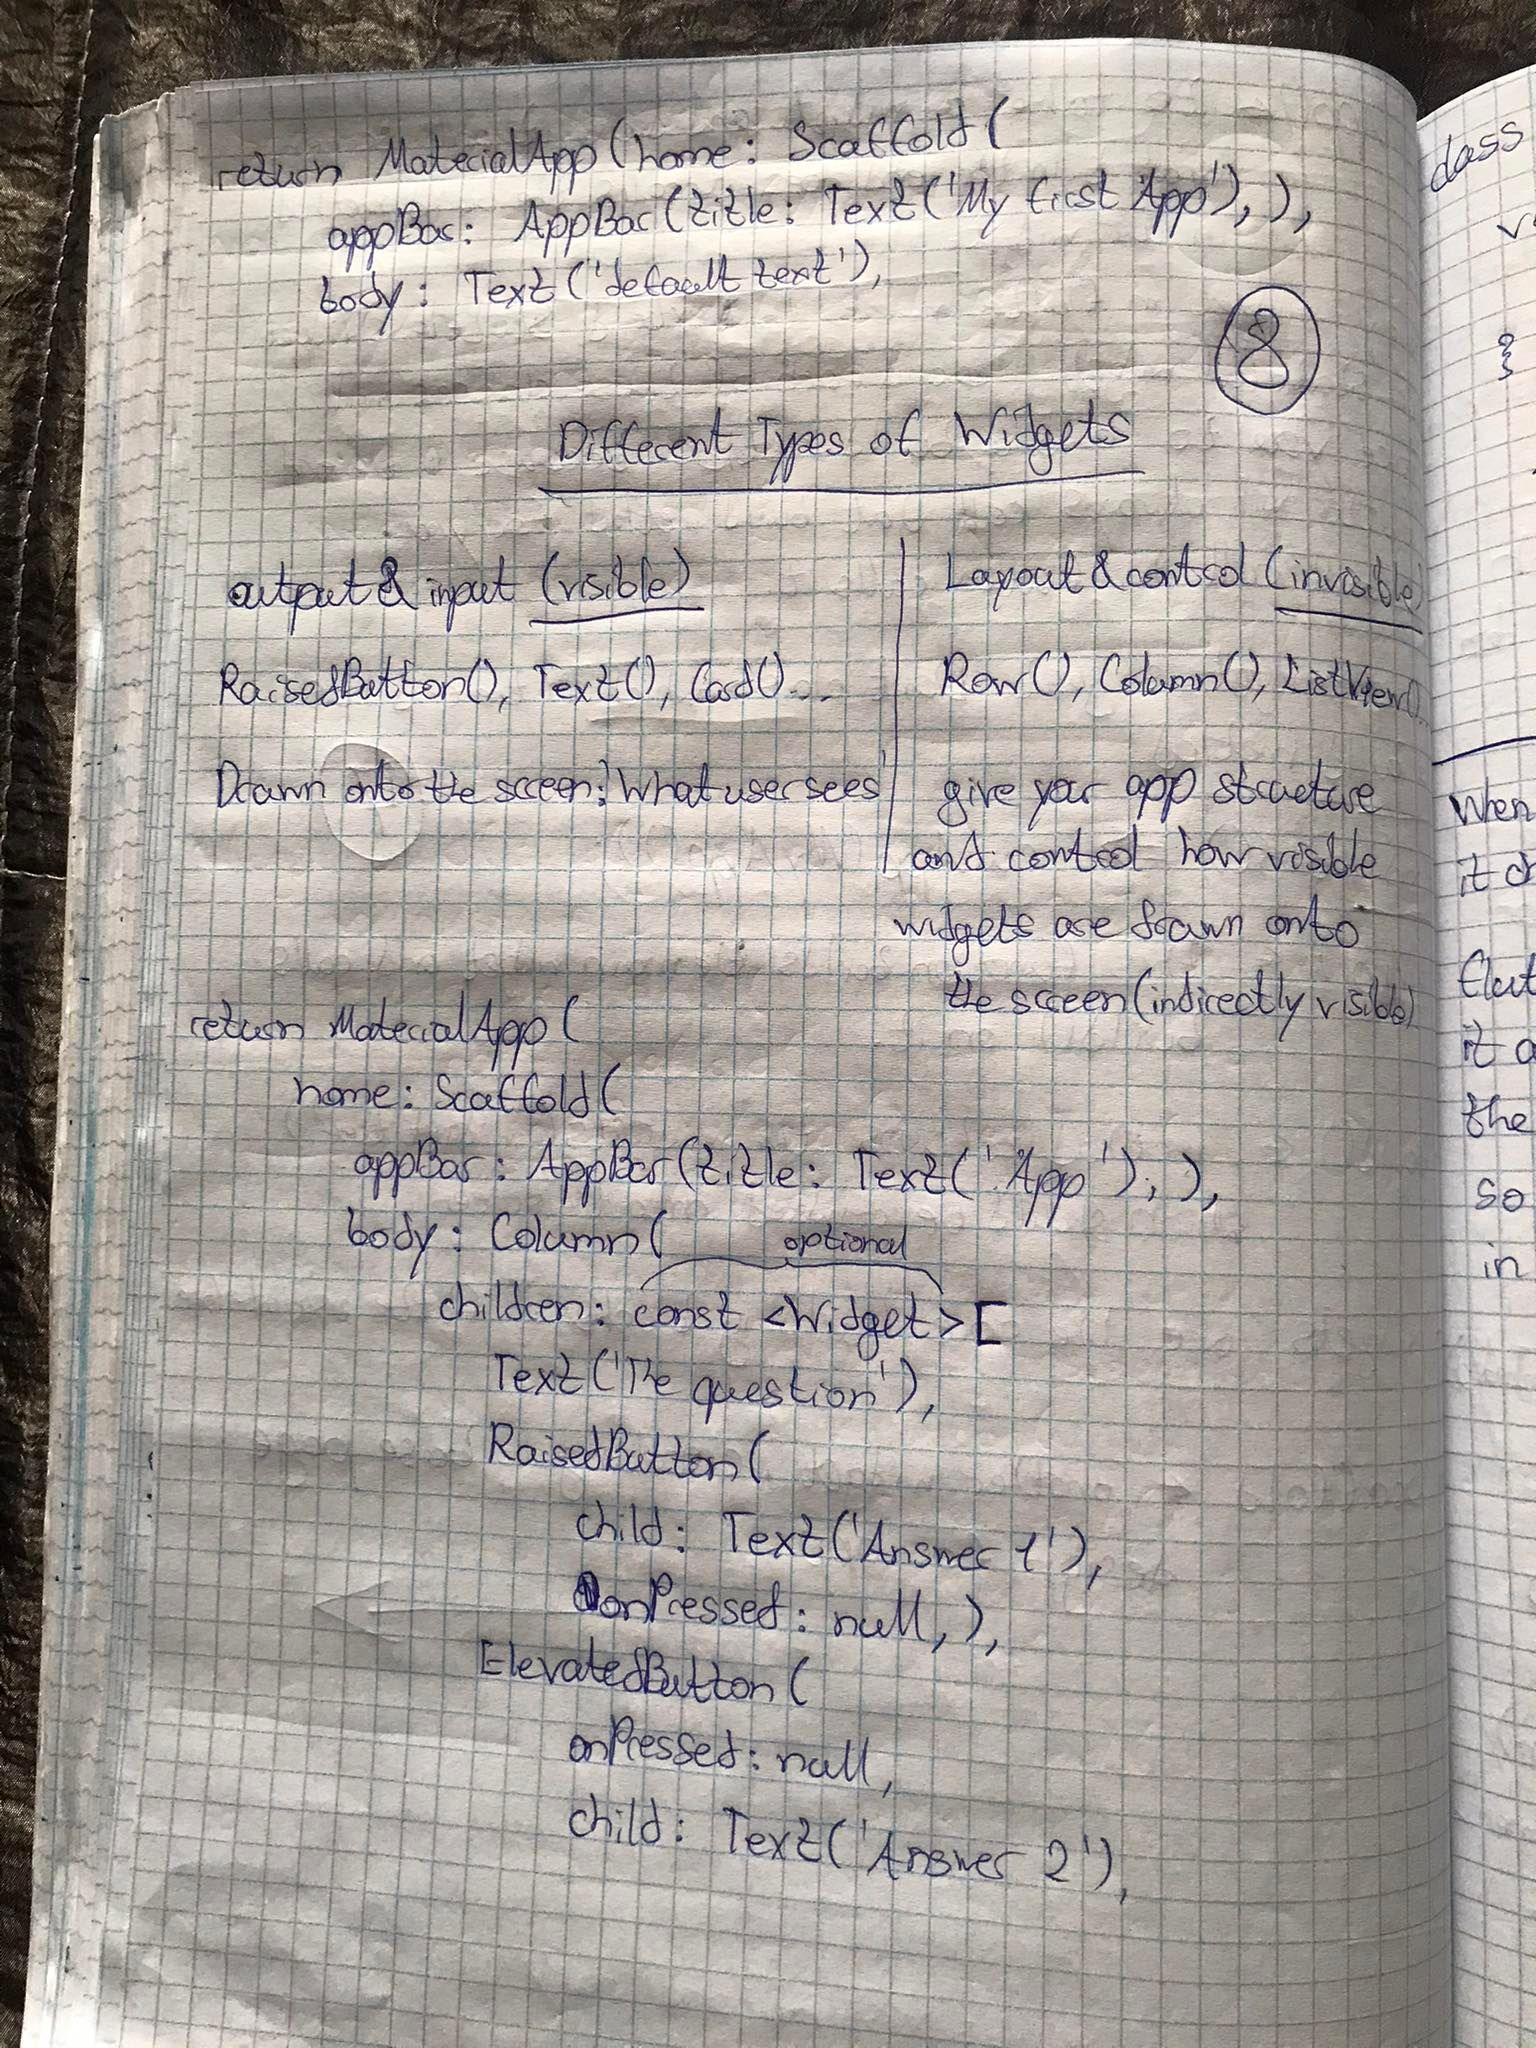 return MaterialApp(home: Scaffold(
appBar: AppBar(title: Text('My first App'), ),
body: Text('default text'),
8
Different Types of Widgets
output & input (visible)
RaisedButton(), Text(), Card()...
Drawn onto the screen: 'What user sees'
Layout & control (invisible)
Row(), Column(), ListView()...
give your app structure
and control how visible
widgets are drawn onto
the screen (indirectly visible)
return MaterialApp(
home: Scaffold(
appBar: AppBar(title: Text('App'), ),
body: Column(
optional
children: const <Widget>[
Text('The question'),
RaisedButton(
child: Text('Answer 1'),
onPressed: null, ),
ElevatedButton(
onPressed: null,
child: Text('Answer 2'),
class
}
When
it
the
so
in